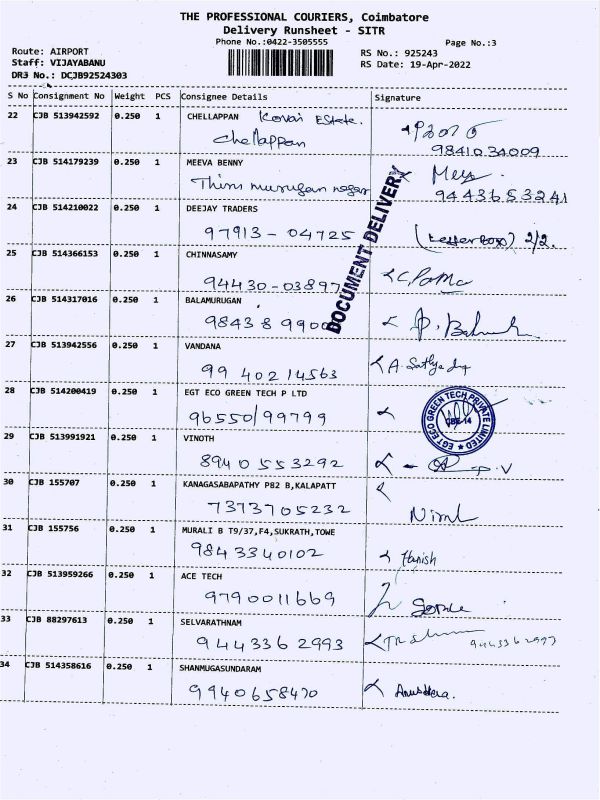 THE PROFESSIONAL COURIERS, Coimbatore
Delivery Runsheet - SITR
Phone No.:0422-3505555
Page No.:3
Route: AIRPORT
Staff: VIJAYABANU
DRS No.: DCJB92524303
RS No.: 925243
RS Date: 19-Apr-2022
S No Consignment No Weight PCS Consignee Details Signature
22 CJB 513942592 0.250 1 CHELLAPPAN Kovai Estate.
Chellappan
9841034009
23 CJB 514179239 0.250 1 MEEVA BENNY
Thirumurugan nagar
9443653241
24 CJB 514210022 0.250 1 DEEJAY TRADERS
97913-04725 (Letterbox) 2/2.
DOCUMENT DELIVERY
25 CJB 514366153 0.250 1 CHINNASAMY
94430-03897
26 CJB 514317016 0.250 1 BALAMURUGAN
98438 9900
27 CJB 513942556 0.250 1 VANDANA
99 40214563 A. Sathya
28 CJB 514200419 0.250 1 EGT ECO GREEN TECH P LTD
96550/99799
EGT ECO GREEN TECH PRIVATE LIMITED
CBE-14
29 CJB 513991921 0.250 1 VINOTH
8940553292
30 CJB 155707 0.250 1 KANAGASABAPATHY P82 B,KALAPATT
7373705232
31 CJB 155756 0.250 1 MURALI B T9/37,F4,SUKRATH,TOWE
9843340102 Hanish
32 CJB 513959266 0.250 1 ACE TECH
9790011669
33 CJB 88297613 0.250 1 SELVARATHNAM
944336 2993 944336 2993
34 CJB 514358616 0.250 1 SHANMUGASUNDARAM
9940658470